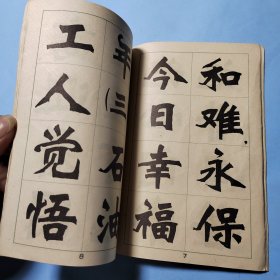 和难,永保
今日幸福
7
年(三石油
工人觉悟
8